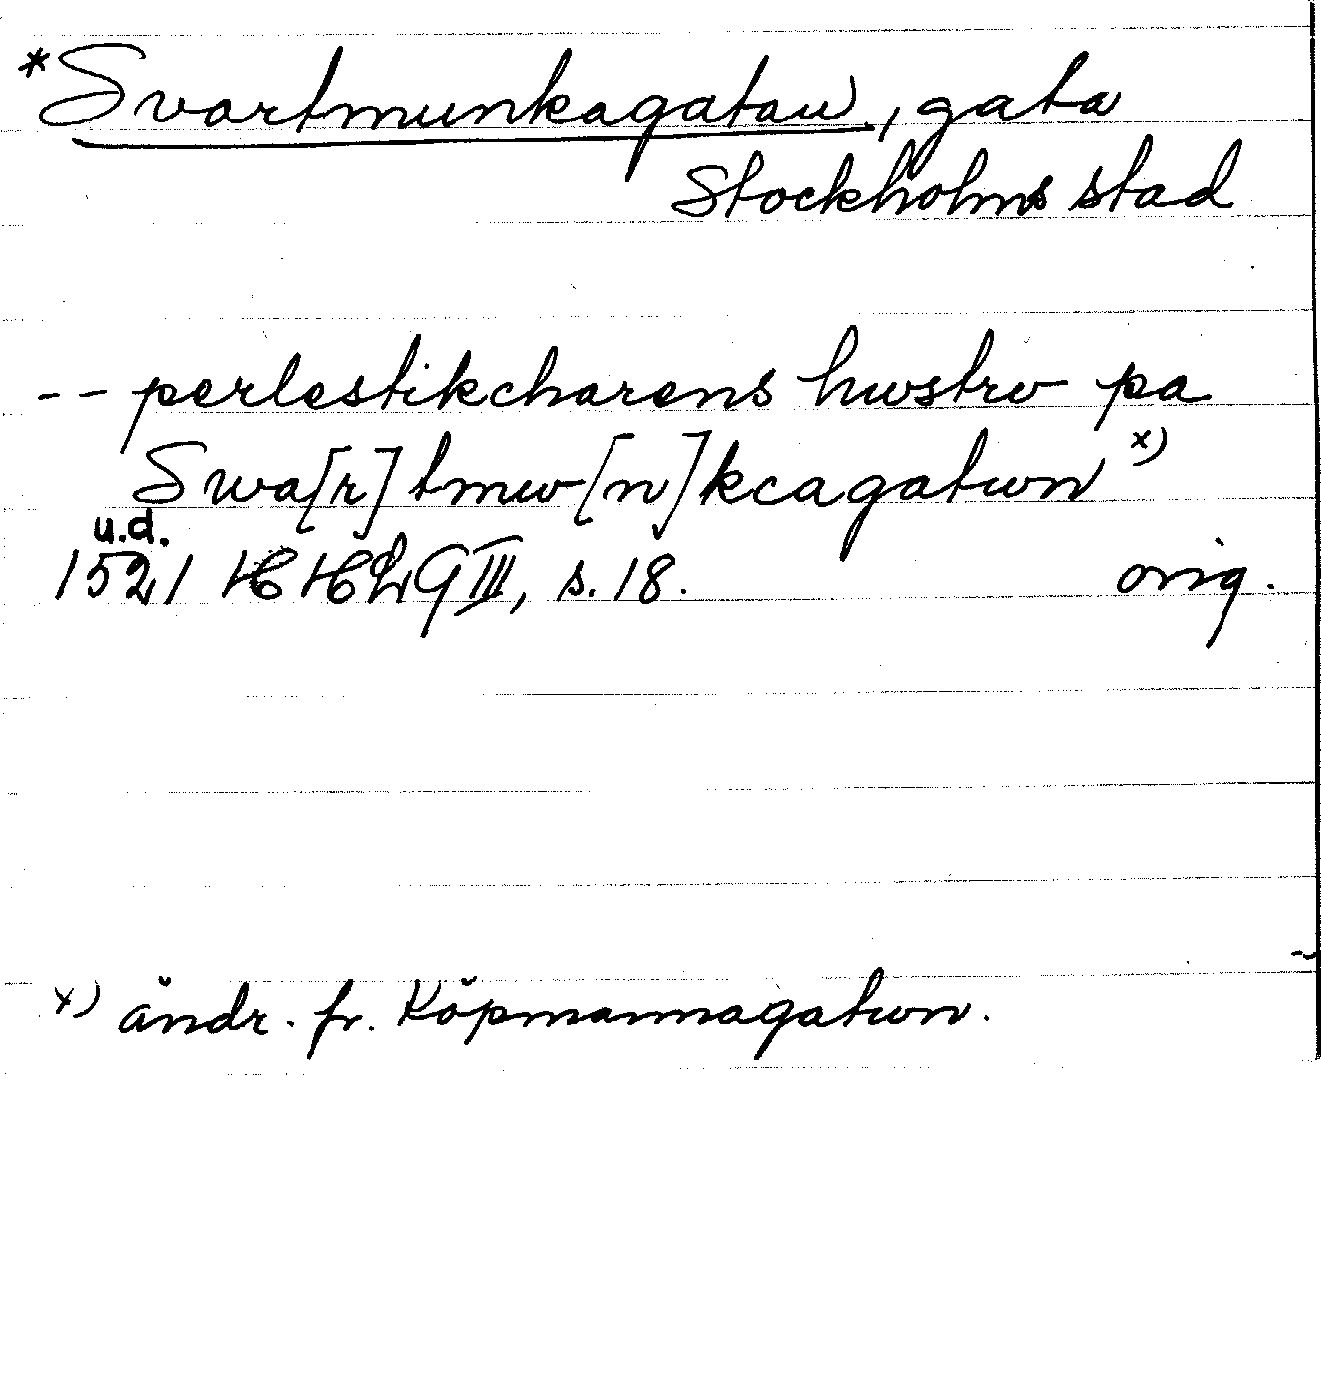 *Svartmunkagatan, gata
Stockholms stad
-- perlestikcharens hwstrv pa
Swa[r]tmw[n]kcagatwn x)
u.d.
1521 HHLG III, s. 18. orig.
x) ändr. fr. Köpmannagatwn.